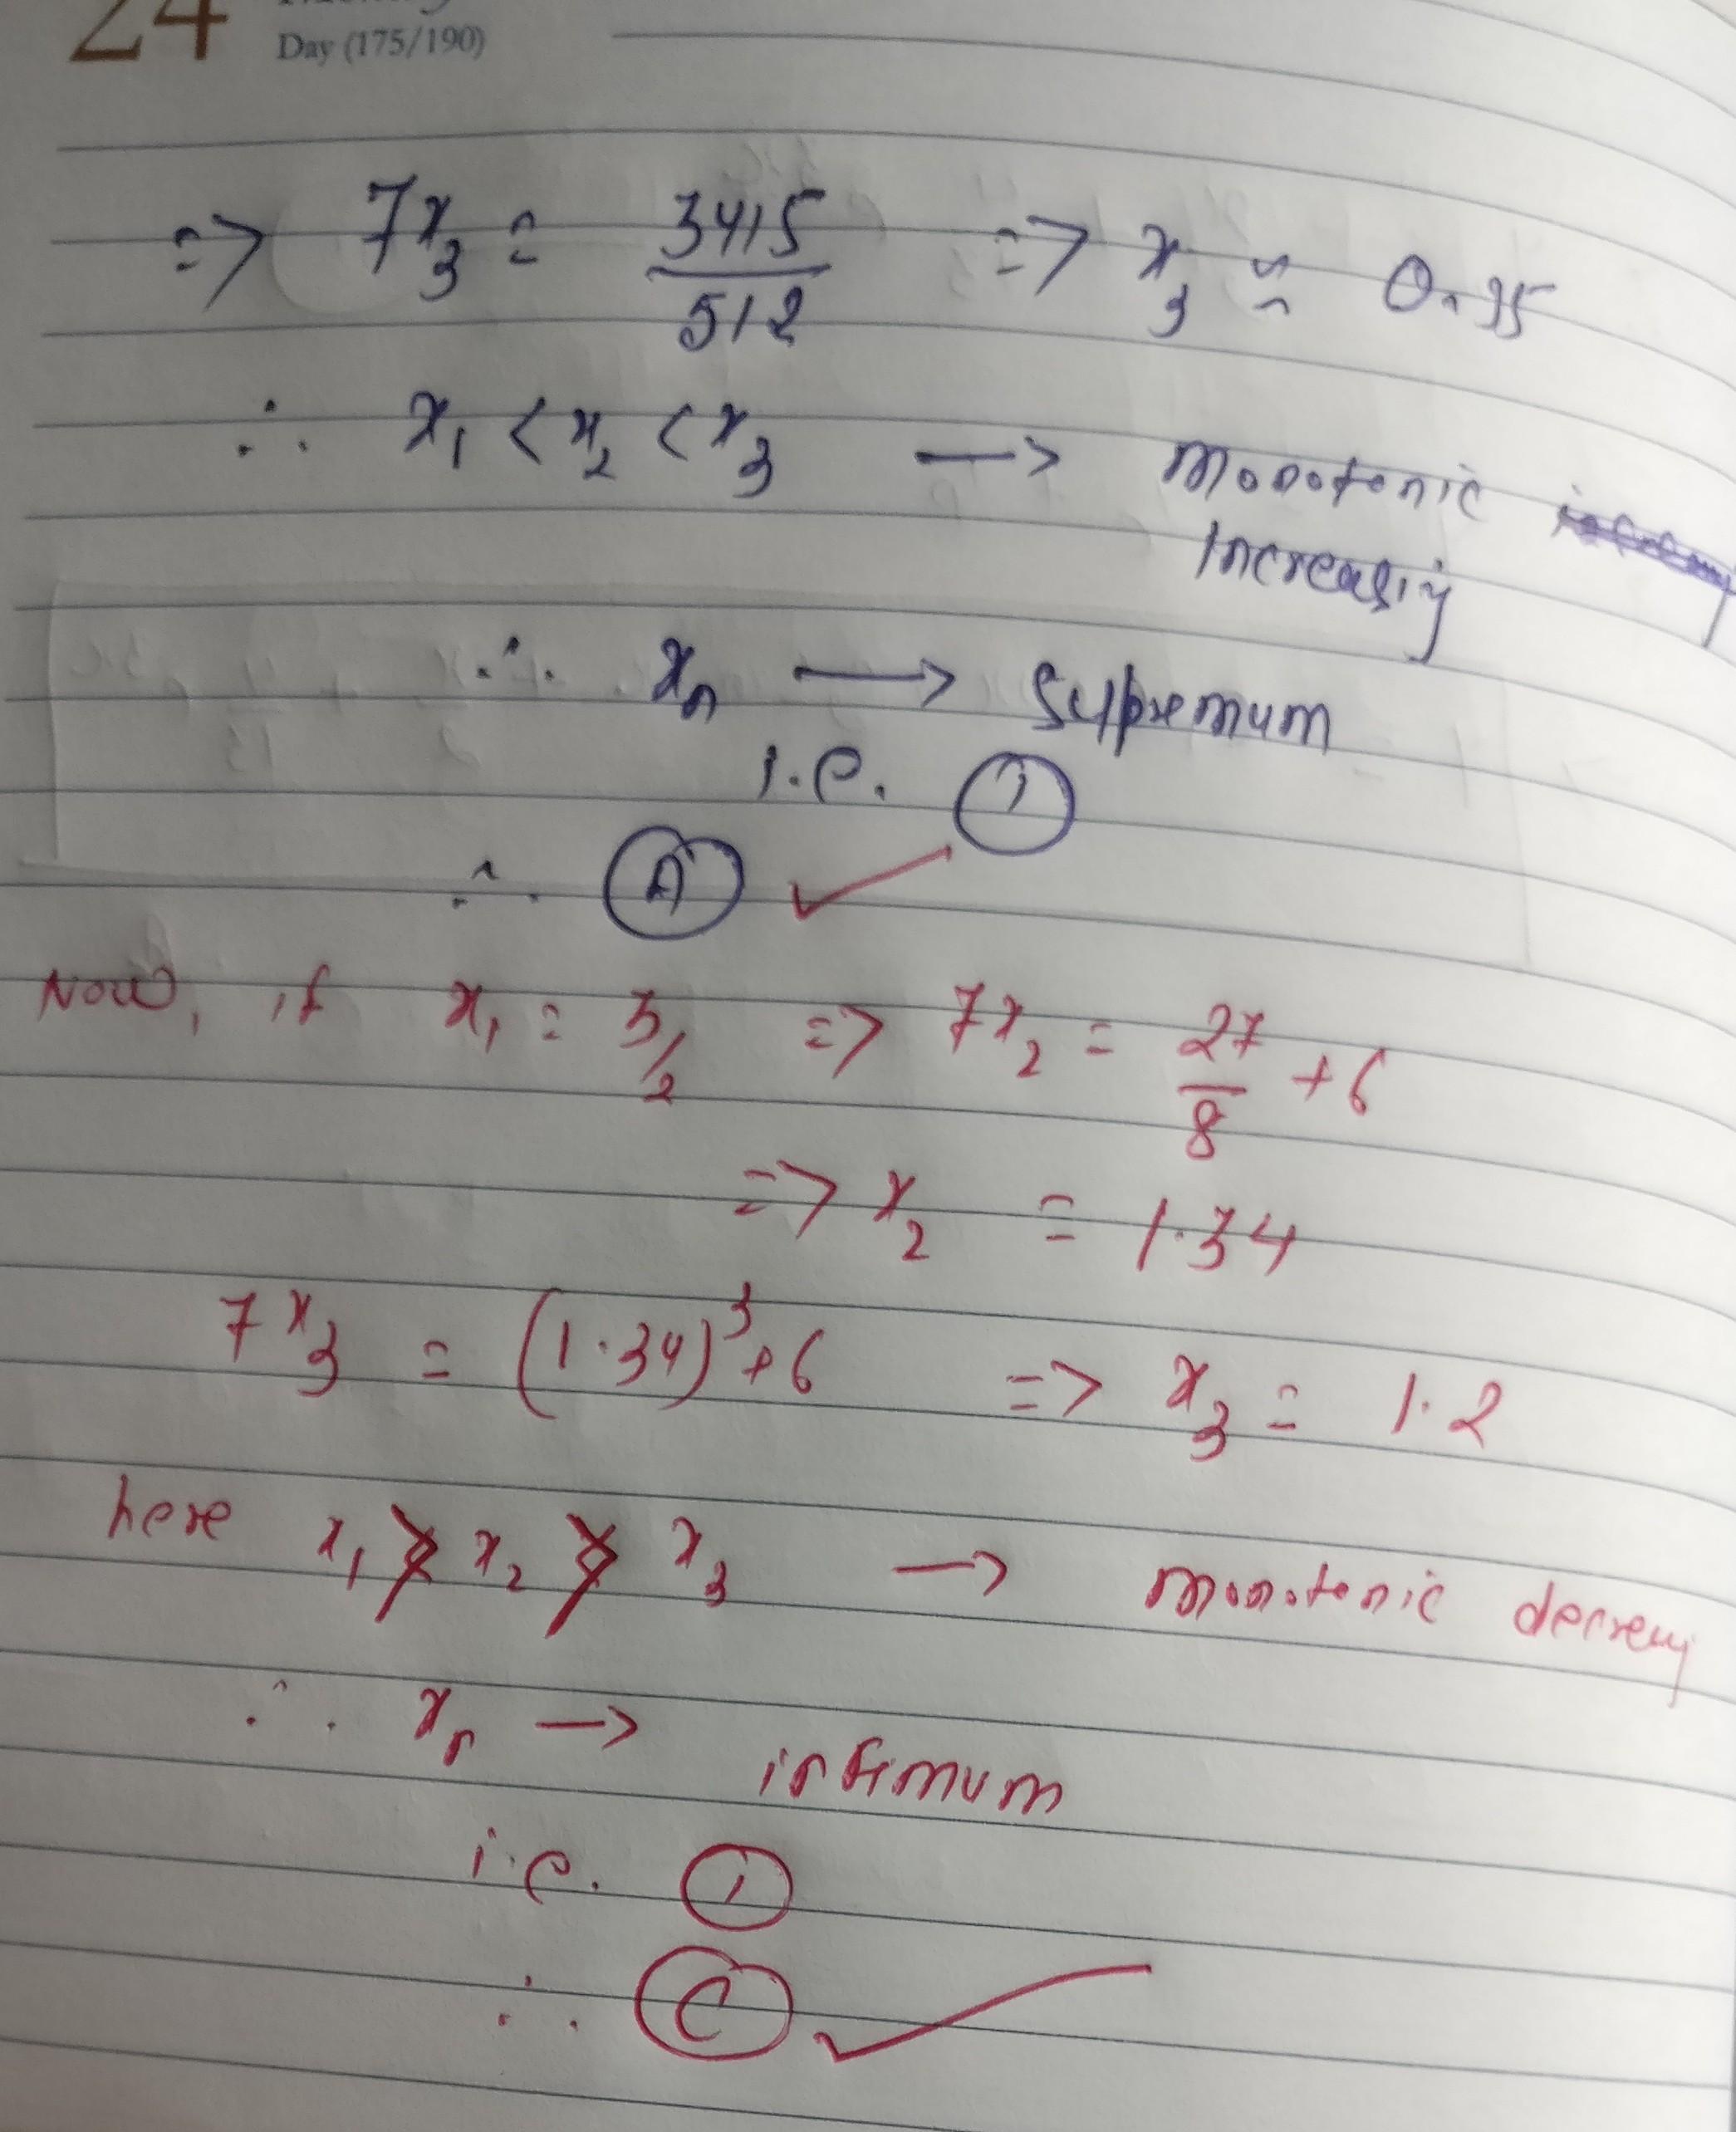 24
Day (175/190)
=> 7x₃ = 3415/512 => x₃ ≈ 0.95
∴ x₁ < x₂ < x₃ → monotonic
Increasing
∴ xₙ → Supremum
i.e. 1
∴ A ✓
Now, if x₁ = 3/2 => 7x₂ = 27/8 + 6
=> x₂ = 1.34
7x₃ = (1.34)³ + 6 => x₃ = 1.2
here x₁ > x₂ > x₃ → monotonic
∴ xₙ → infimum
i.e. 1
∴ C ✓